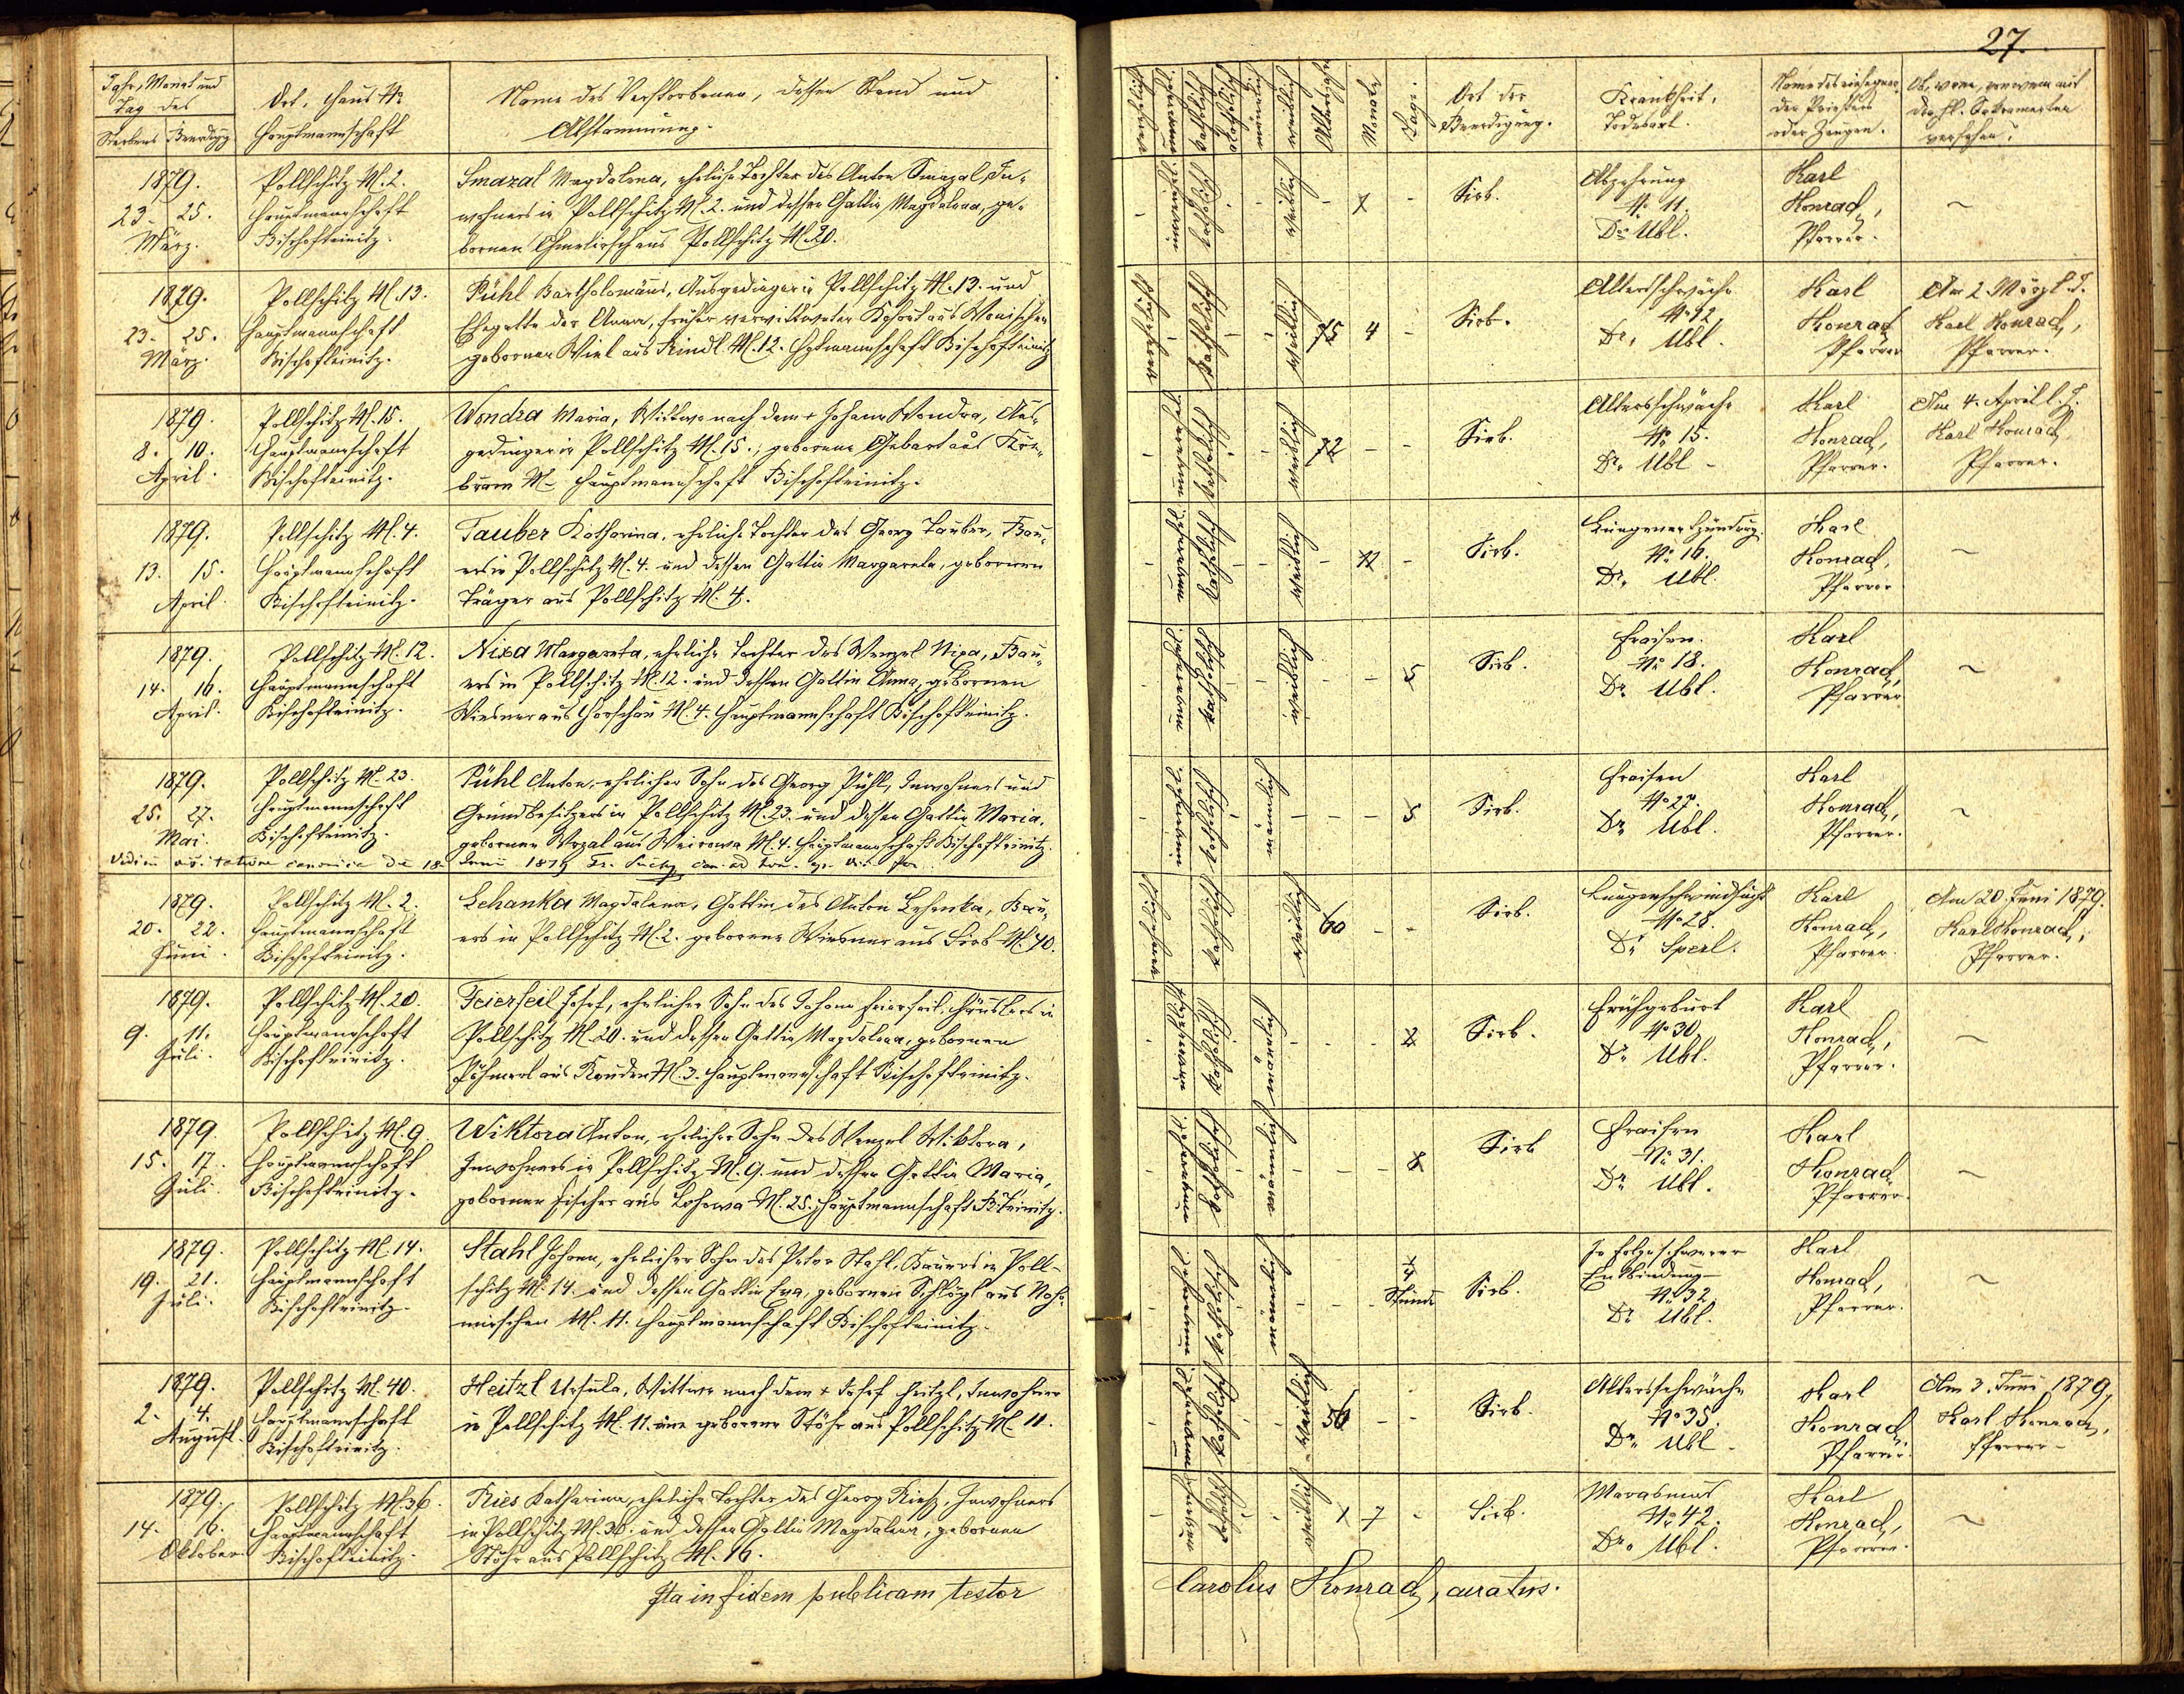 27.
Jahr, Monat und
Tag des
Sterbens Beerdigg
Ort, Haus №
Hauptmannschaft
Name des Verstorbenen, dessen Stand und
Abstammung.
männlich
weiblich
Monate
Tage.
Ort der
Beerdigung.
Krankheit,
Todesart.
Name des einsegnen
den Priesters
oder Zeugen.
Ob, wenn, von wem mit
den hl. Sakramenten
versehen?
1879.
23. 25.
März.
Pollschitz N. 2.
Hauptmannschaft
Bischofteinitz.
Smazal Magdalena, eheliche Tochter des Anton Smazal, In-
wohners in Pollschitz N. 2. und dessen Gattin Magdalena, ge-
bornen aus Pollschitz N. 20.
katholisch
weiblich
Sirb.
Abzehrung
№ 11.
Dr. Ubl.
Karl
Konrad,
Pfarrer.
1879.
23. 25.
März.
Pollschitz N. 13.
Hauptmannschaft
Bischofteinitz.
Pühl Bartholomäus, Ausgedinger in Pollschitz N. 13. und
Ehegatte der Anna, früher verwittweter aus
gebornen aus N. 12. Hptmannschaft Bischofteinitz
katholisch
weiblich
75 4 -
Sirb.
Altersschwäche
№ 12.
Dr. Ubl.
Karl
Konrad
Pfarrer
Am 2. März l. J.
Karl Konrad,
Pfarrer.
1879.
8. 10.
April.
Pollschitz N. 15.
Hauptmannschaft
Bischofteinitz.
Wondra Maria, Wittwe nach dem + Johann Wondra, Aus-
gedinger in Pollschitz N. 15., geborene Gebert aus
N. - Hauptmannschaft Bischofteinitz.
katholisch
weiblich
72 - -
Sirb.
Altersschwäche
№ 15.
Dr. Ubl -
Karl
Konrad,
Pfarrer.
Am 4. April l. J.
Karl Konrad
Pfarrer.
1879.
13. 15.
April
Pollschitz N. 4.
Hauptmannschaft
Bischofteinitz.
Tauber Katharina, eheliche Tochter des Georg Tauber, Bau-
ers in Pollschitz N. 4. und dessen Gattin Margareta, gebornen
Träger aus Pollschitz N. 4.
katholisch
weiblich
Sirb.
Lungenentzündung.
№ 16.
Dr. Ubl.
Karl
Konrad,
Pfarrer
1879.
14. 16.
April.
Pollschitz N. 12.
Hauptmannschaft
Bischofteinitz.
Nixa Margareta, eheliche Tochter des Wenzel Nixa, Bau-
ers in Pollschitz N. 12. und dessen Gattin Anna, gebornen
Wiesner aus Horschau N. 4. Hauptmannschaft Bischofteinitz.
katholisch
weiblich
5
Sirb.
Fraisen.
№ 18.
Dr. Ubl.
Karl
Konrad,
Pfarrer
1879.
25. 27.
Mai.
Pollschitz N. 23.
Hauptmannschaft
Bischofteinitz.
Pühl Anton, ehelicher Sohn des Georg Pühl, Inwohners und
Grundbesitzers in Pollschitz N. 23. und dessen Gattin Maria,
gebornen Wrzal aus Weirowa N. 4. Hauptmannschaft Bischofteinitz.
katholisch
männlich
5
Sirb.
Fraisen
№ 27.
Dr. Ubl.
Karl
Konrad,
Pfarrer.
1879.
20. 22.
Juni.
Pollschitz N. 2.
Hauptmannschaft
Bischofteinitz.
Lehanka Magdalena, Gattin des Anton Lehanka, Bau-
ers in Pollschitz N. 2. geborene Wiesner aus Sirb N. 40.
katholisch
weiblich
60 - -
Sirb.
Lungenschwindsucht
№ 28.
Dr. Sperl.
Karl
Konrad,
Pfarrer.
Am 20. Juni 1879.
Karl Konrad,
Pfarrer.
1879.
9. 11.
Juli.
Pollschitz N. 20.
Hauptmannschaft
Bischofteinitz.
Feierfeil Josef, ehelicher Sohn des Johann Feierfeil, Häuslers in
Pollschitz N. 20. und dessen Gattin Magdalena, gebornen
aus N. 3. Hauptmannschaft Bischofteinitz.
katholisch
männlich
Sirb.
Frühgeburt
№ 30.
Dr. Ubl.
Karl
Konrad,
Pfarrer.
1879.
15. 17.
Juli.
Pollschitz N. 9.
Hauptmannschaft
Bischofteinitz.
Wiktora Anton, ehelicher Sohn des Wenzel Wiktora,
Inwohners in Pollschitz N. 9. und dessen Gattin Maria,
gebornen Fischer aus Lohowa N. 25. Hauptmannschaft B. Teinitz.
katholisch
männlich
Sirb
Fraisen
№ 31.
Dr. Ubl.
Karl
Konrad
Pfarrer.
1879.
19. 21.
Juli.
Pollschitz N. 14.
Hauptmannschaft
Bischofteinitz.
Stahl Johann, ehelicher Sohn des Peter Stahl, Bauers in Poll-
schitz N. 14. und dessen Gattin Eva, gebornen Schlögl aus
N. 11. Hauptmannschaft Bischofteinitz.
katholisch
männlich
1/4
Stunde
Sirb.
In Folge schwerer
Entbindung -
№ 32.
Dr. Ubl.
Karl
Konrad,
Pfarrer.
1879.
2. 4.
August.
Pollschitz N. 40.
Hauptmannschaft
Bischofteinitz.
Heitzl Ursula, Wittwe nach dem + Josef Heitzl, Inwohner
in Pollschitz N. 11. eine geborene Stöhr aus Pollschitz N. 11.
katholisch
weiblich
56 - -
Sirb.
Altersschwäche
№ 35.
Dr. Ubl.
Karl
Konrad
Pfarrer.
Am 3. Juni 1879,
Karl Konrad,
Pfarrer -
1879.
14. 16.
Oktober
Pollschitz N. 36.
Hauptmannschaft
Bischofteinitz.
Ries Katharina, eheliche Tochter des Georg Riess, Inwohners
in Pollschitz N. 36. und dessen Gattin Magdalena, gebornen
Stöhr aus Pollschitz N. 16.
katholisch
weiblich
1 7 -
Sirb.
Marasmus
№ 42.
Dr. Ubl.
Karl
Konrad,
Pfarrer.
Ita in fidem publicam testor
Carolus Konrad, curatus.